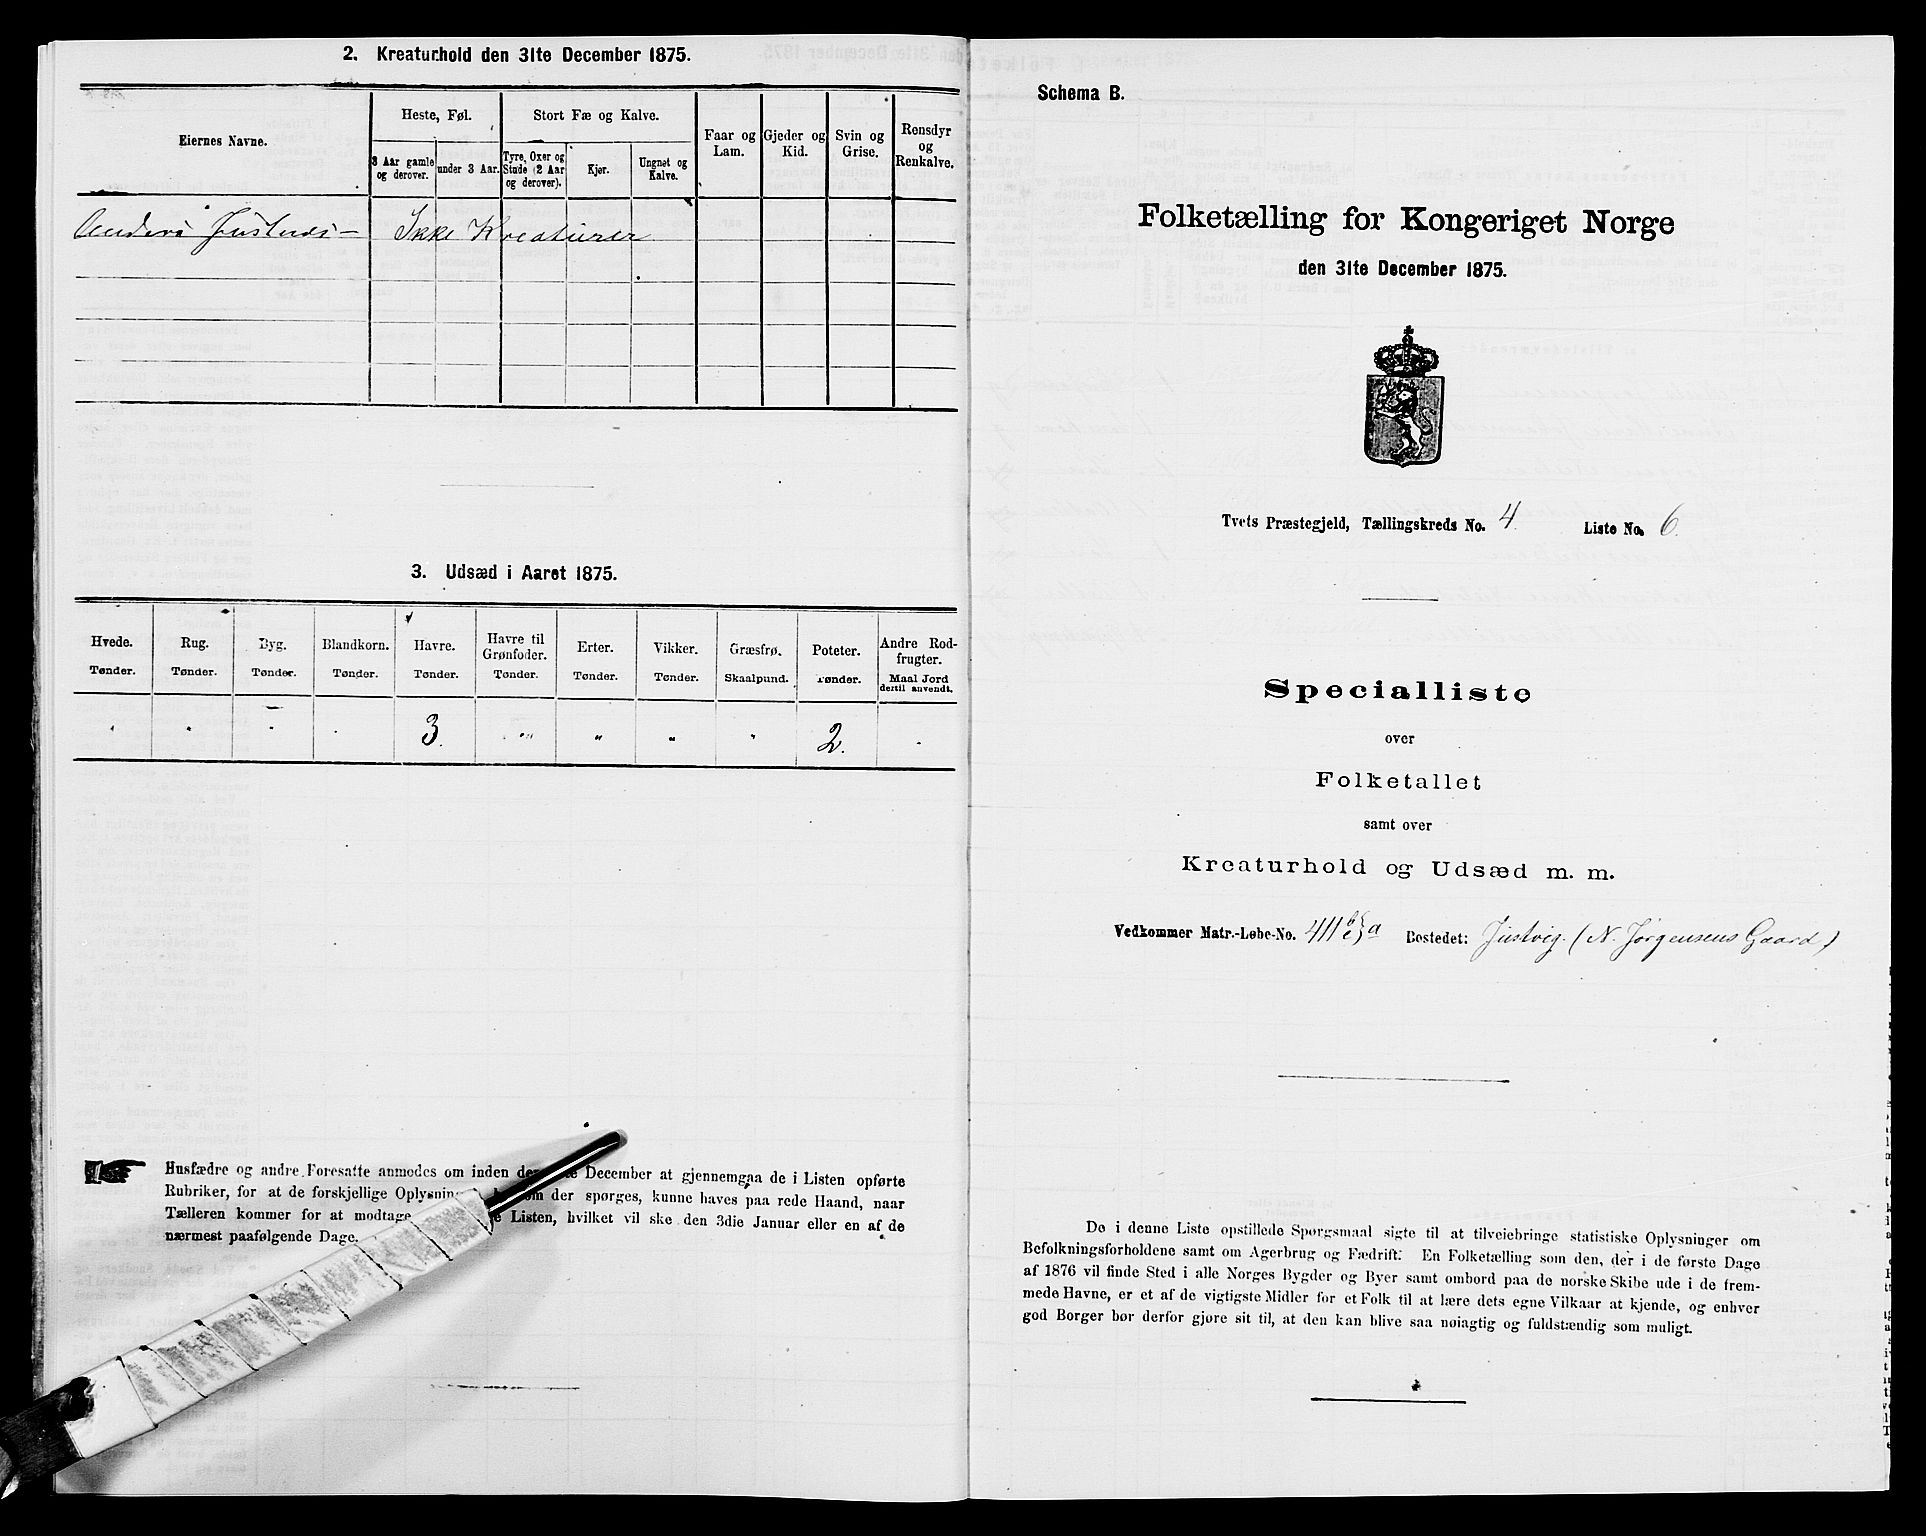 2. Kreaturhold den 31te December 1875.
Eiernes Navne.
Heste, Føl.
3 Aar gamle og derover.
under 3 Aar.
Stort Fæ og Kalve.
Tyre, Oxer og Stude (2 Aar og derover).
Kjør.
Ungnøt og Kalve.
Faar og Lam.
Gjeder og Kid.
Svin og Grise.
Rensdyr og Renkalve.
Anders Ikke Kreaturer
3. Udsæd i Aaret 1875.
Hvede. Rug. Byg. Blandkorn. Havre. Havre til Grønfoder. Erter. Vikker. Græsfrø. Poteter. Andre Rodfrugter.
Tønder. Tønder. Tønder. Tønder. Tønder. Tønder. Tønder. Tønder. Skaalpund. Tønder. Maal Jord dertil anvendt.
" " " " 3. " " " " 2. "
Husfædre og andre Foresatte anmodes om inden den December at gjennemgaa de i Listen opførte
Rubriker, for at de forskjellige der spørges, kunne haves paa rede Haand, naar
Tælleren kommer for at modtage Listen, hvilket vil ske den 3die Januar eller en af de
nærmest paafølgende Dage.
Schema B.
Folketælling for Kongeriget Norge
den 31te December 1875.
Tvets Præstegjeld, Tællingskreds No. 4. Liste No. 6.
Specialliste
over
Folketallet
samt over
Kreaturhold og Udsæd m. m.
Vedkommer Matr.-Løbe-No. 411 a Bostedet: Justvig. (N. Jørgensens Gaard)
De i denne Liste opstillede Spørgsmaal sigte til at tilveiebringe statistiske Oplysninger om
Befolkningsforholdene samt om Agerbrug og Fædrift. En Folketælling som den, der i de første Dage
af 1876 vil finde Sted i alle Norges Bygder og Byer samt ombord paa de norske Skibe ude i de frem-
mede Havne, er et af de vigtigste Midler for et Folk til at lære dets egne Vilkaar at kjende, og enhver
god Borger bør derfor gjøre sit til, at den kan blive saa nøiagtig og fuldstændig som muligt.